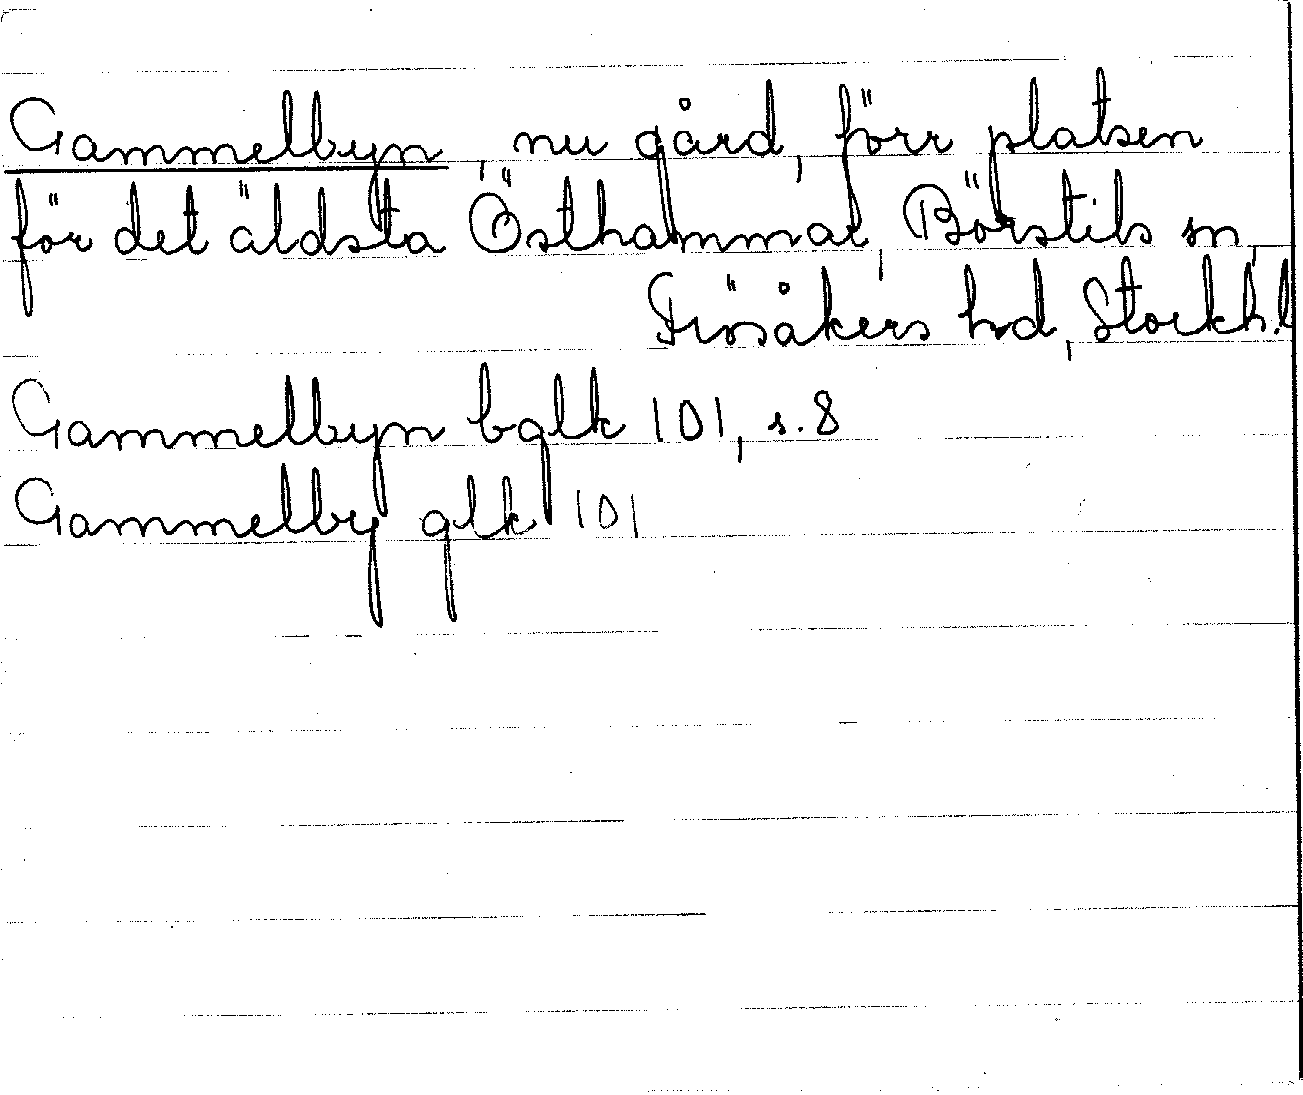 Gammelbyn, nu gård, förr platsen
för det äldsta Östhammar, Börstils sn,
Frösåkers hd, Stockh.l
Gammelbyn bglk 101, s. 8
Gammelby glk 101